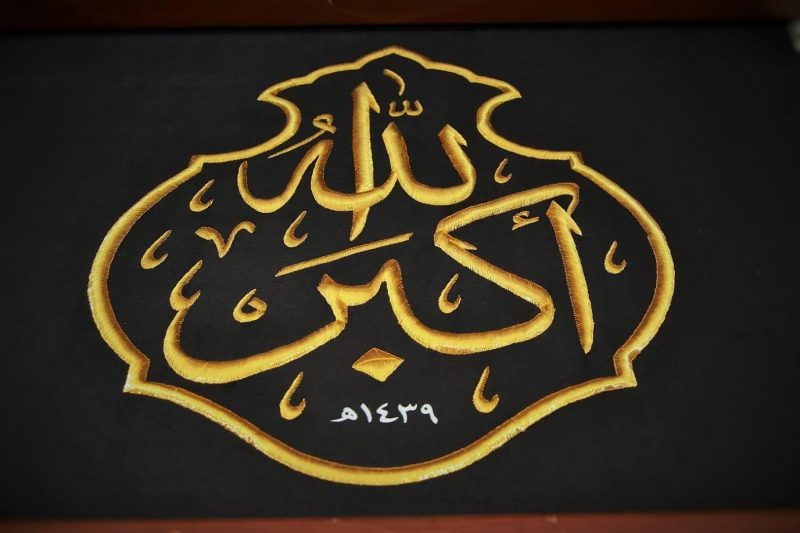 الله
أكبر
١٤٣٩هـ